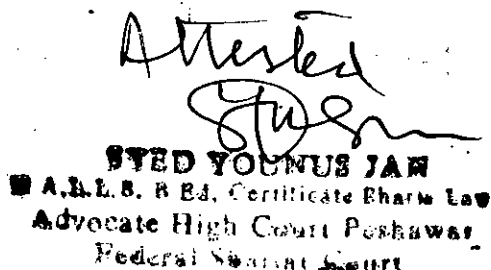 Attested
SYED YOUNUS JAN
B A.B.L.B. B Ed. Certificate Sharia Law
Advocate High Court Peshawar
Federal Shariat Court